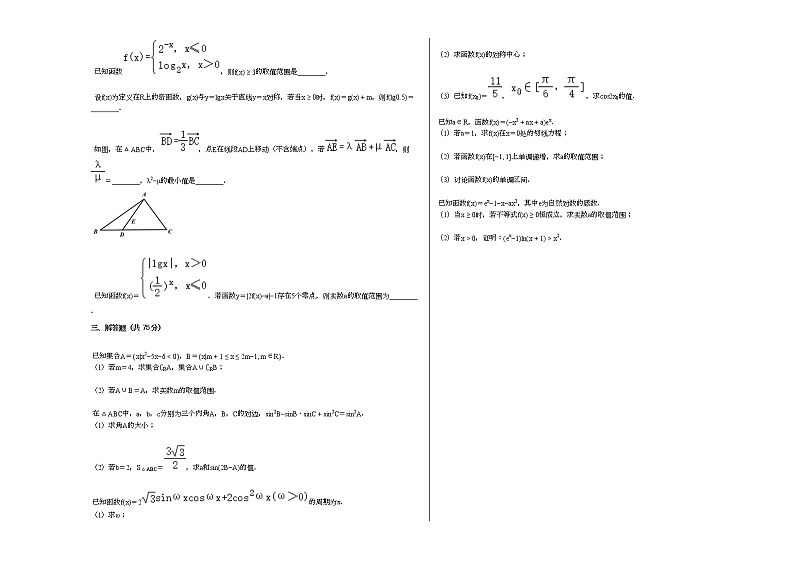 已知函数f(x)={2^{-x}, x≤0
log₂x, x>0，则f(x) ≥ 3的取值范围是________.
设f(x)为定义在R上的奇函数，g(x)与y＝lgx关于直线y＝x对称，若当x ≥ 0时，f(x)＝g(x)＋m，则f(lg0.5)＝
________.
如图，在△ABC中，BD=1/3BC，点E在线段AD上移动（不含端点），若AE=λAB+μAC，则
λ/μ=________，λ²−μ的最小值是________.
A
E
B D C
已知函数f(x)＝{|lgx|, x>0
(1/2)^x, x≤0，若函数y＝|2f(x)−a|−1存在5个零点，则实数a的取值范围为________
.
三、解答题（共 75分）
已知集合A＝{x|x²−5x−6＜0}，B＝{x|m＋1 ≤ x ≤ 2m−1, m∈R}.
（1）若m＝4，求集合∁RA，集合A∪∁RB；
（2）若A∪B＝A，求实数m的取值范围.
在△ABC中，a，b，c分别为三个内角A，B，C的对边，sin²B−sinB⋅sinC＋sin²C＝sin²A.
（1）求角A的大小；
（2）若b＝2，S△ABC＝3√3/2，求a和sin(2B−A)的值.
已知函数f(x)＝2√3sinωxcosωx+2cos²ωx(ω>0)的周期为π.
（1）求ω；
（2）求函数f(x)的对称中心；
（3）已知f(x₀)＝11/5，x₀∈[π/6, π/4]，求cos2x₀的值.
已知a∈R，函数f(x)＝(−x²＋ax＋a)eˣ.
（1）若a＝1，求f(x)在x＝0处的切线方程；
（2）若函数f(x)在[−1, 1]上单调递增，求a的取值范围；
（3）讨论函数f(x)的单调区间.
已知函数f(x)＝eˣ−1−x−ax²，其中e为自然对数的底数.
（1）当x ≥ 0时，若不等式f(x) ≥ 0恒成立，求实数a的取值范围；
（2）若x＞0，证明：(eˣ−1)ln(x＋1)＞x².